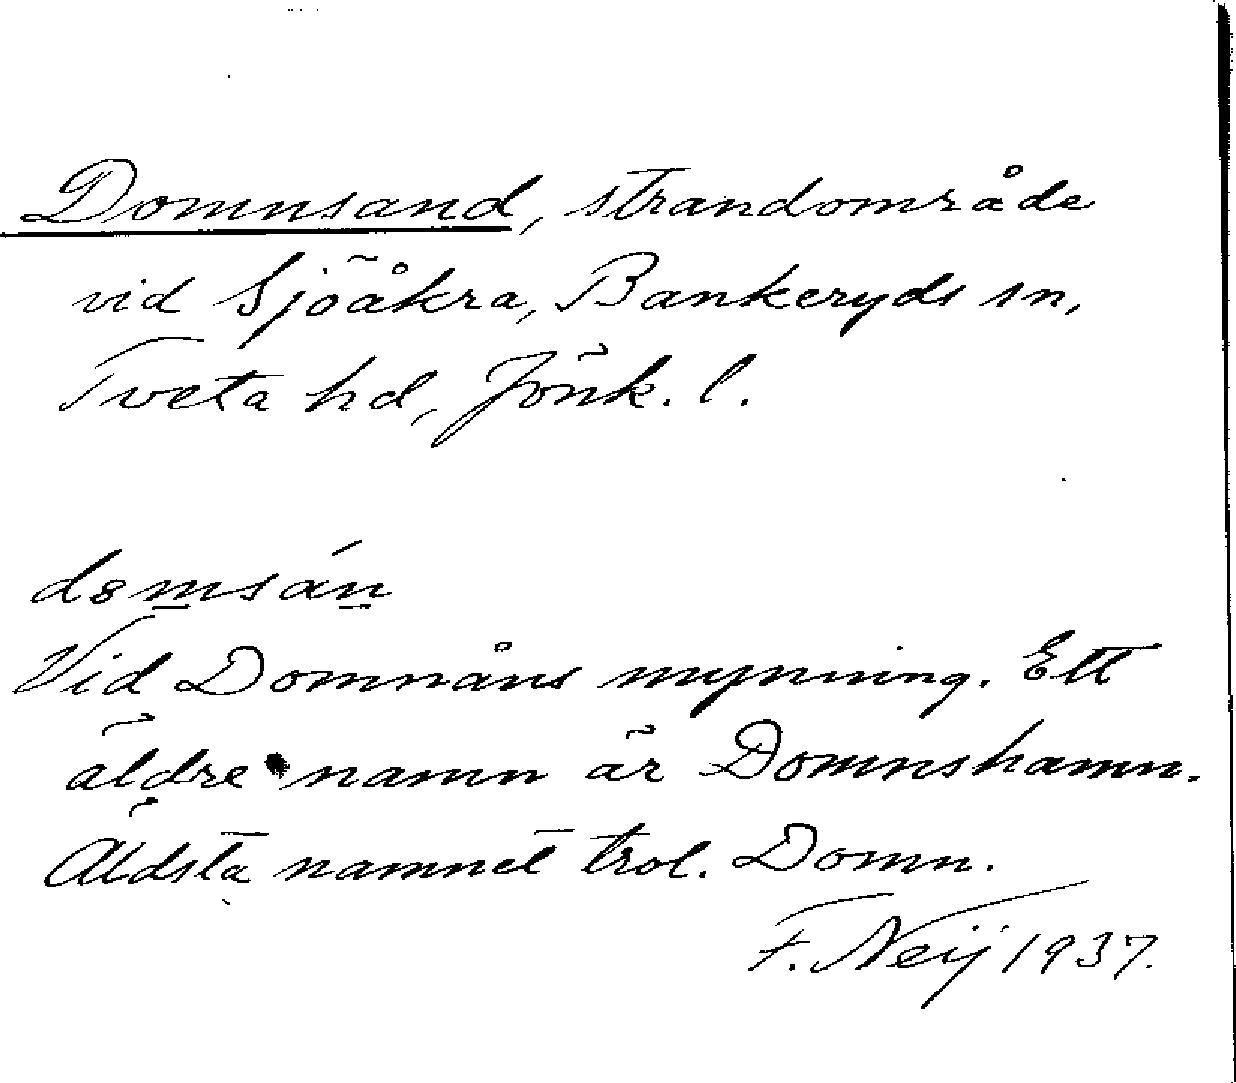 Domnsand, strandområde
vid Sjöåkra, Bankeryds sn,
Tveta hd, Jönk. l.
dɷmsán
Vid Domnåns mynning. Ett
äldre namn är Domnshamn.
Äldsta namnet trol. Domn.
F. Neij 1937.